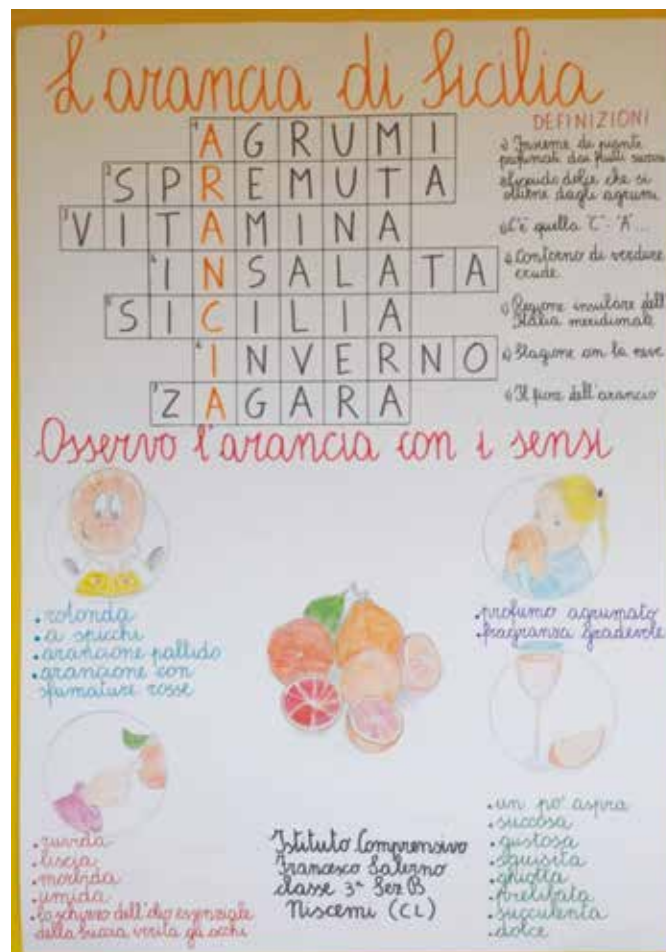 L'arancia di Sicilia
AGRUMI
SPREMUTA
VITAMINA
INSALATA
SICILIA
INVERNO
ZAGARA
DEFINIZIONI
1) Insieme di piante
profumati dai frutti succosi
2) Liquido dolce che si
ottiene dagli agrumi
3) C'è quella "C" - "A"...
4) Contorno di verdure
crude
5) Regione insulare dell'
Italia meridionale
6) Stagione con la neve
7) Il fiore dell'arancio
Osservo l'arancia con i sensi
• rotonda
• a spicchi
• arancione pallido
• arancione con
sfumature rosse
• profumo agrumato
• fragranza gradevole
• ruvida
• liscia
• morbida
• umida
• lo schizzo dell'olio essenziale
della buccia irrita gli occhi
Istituto Comprensivo
Francesco Salerno
classe 3ª Sez B
Niscemi (CL)
• un po' aspra
• succosa
• gustosa
• squisita
• ghiotta
• prelibata
• succulenta
• dolce